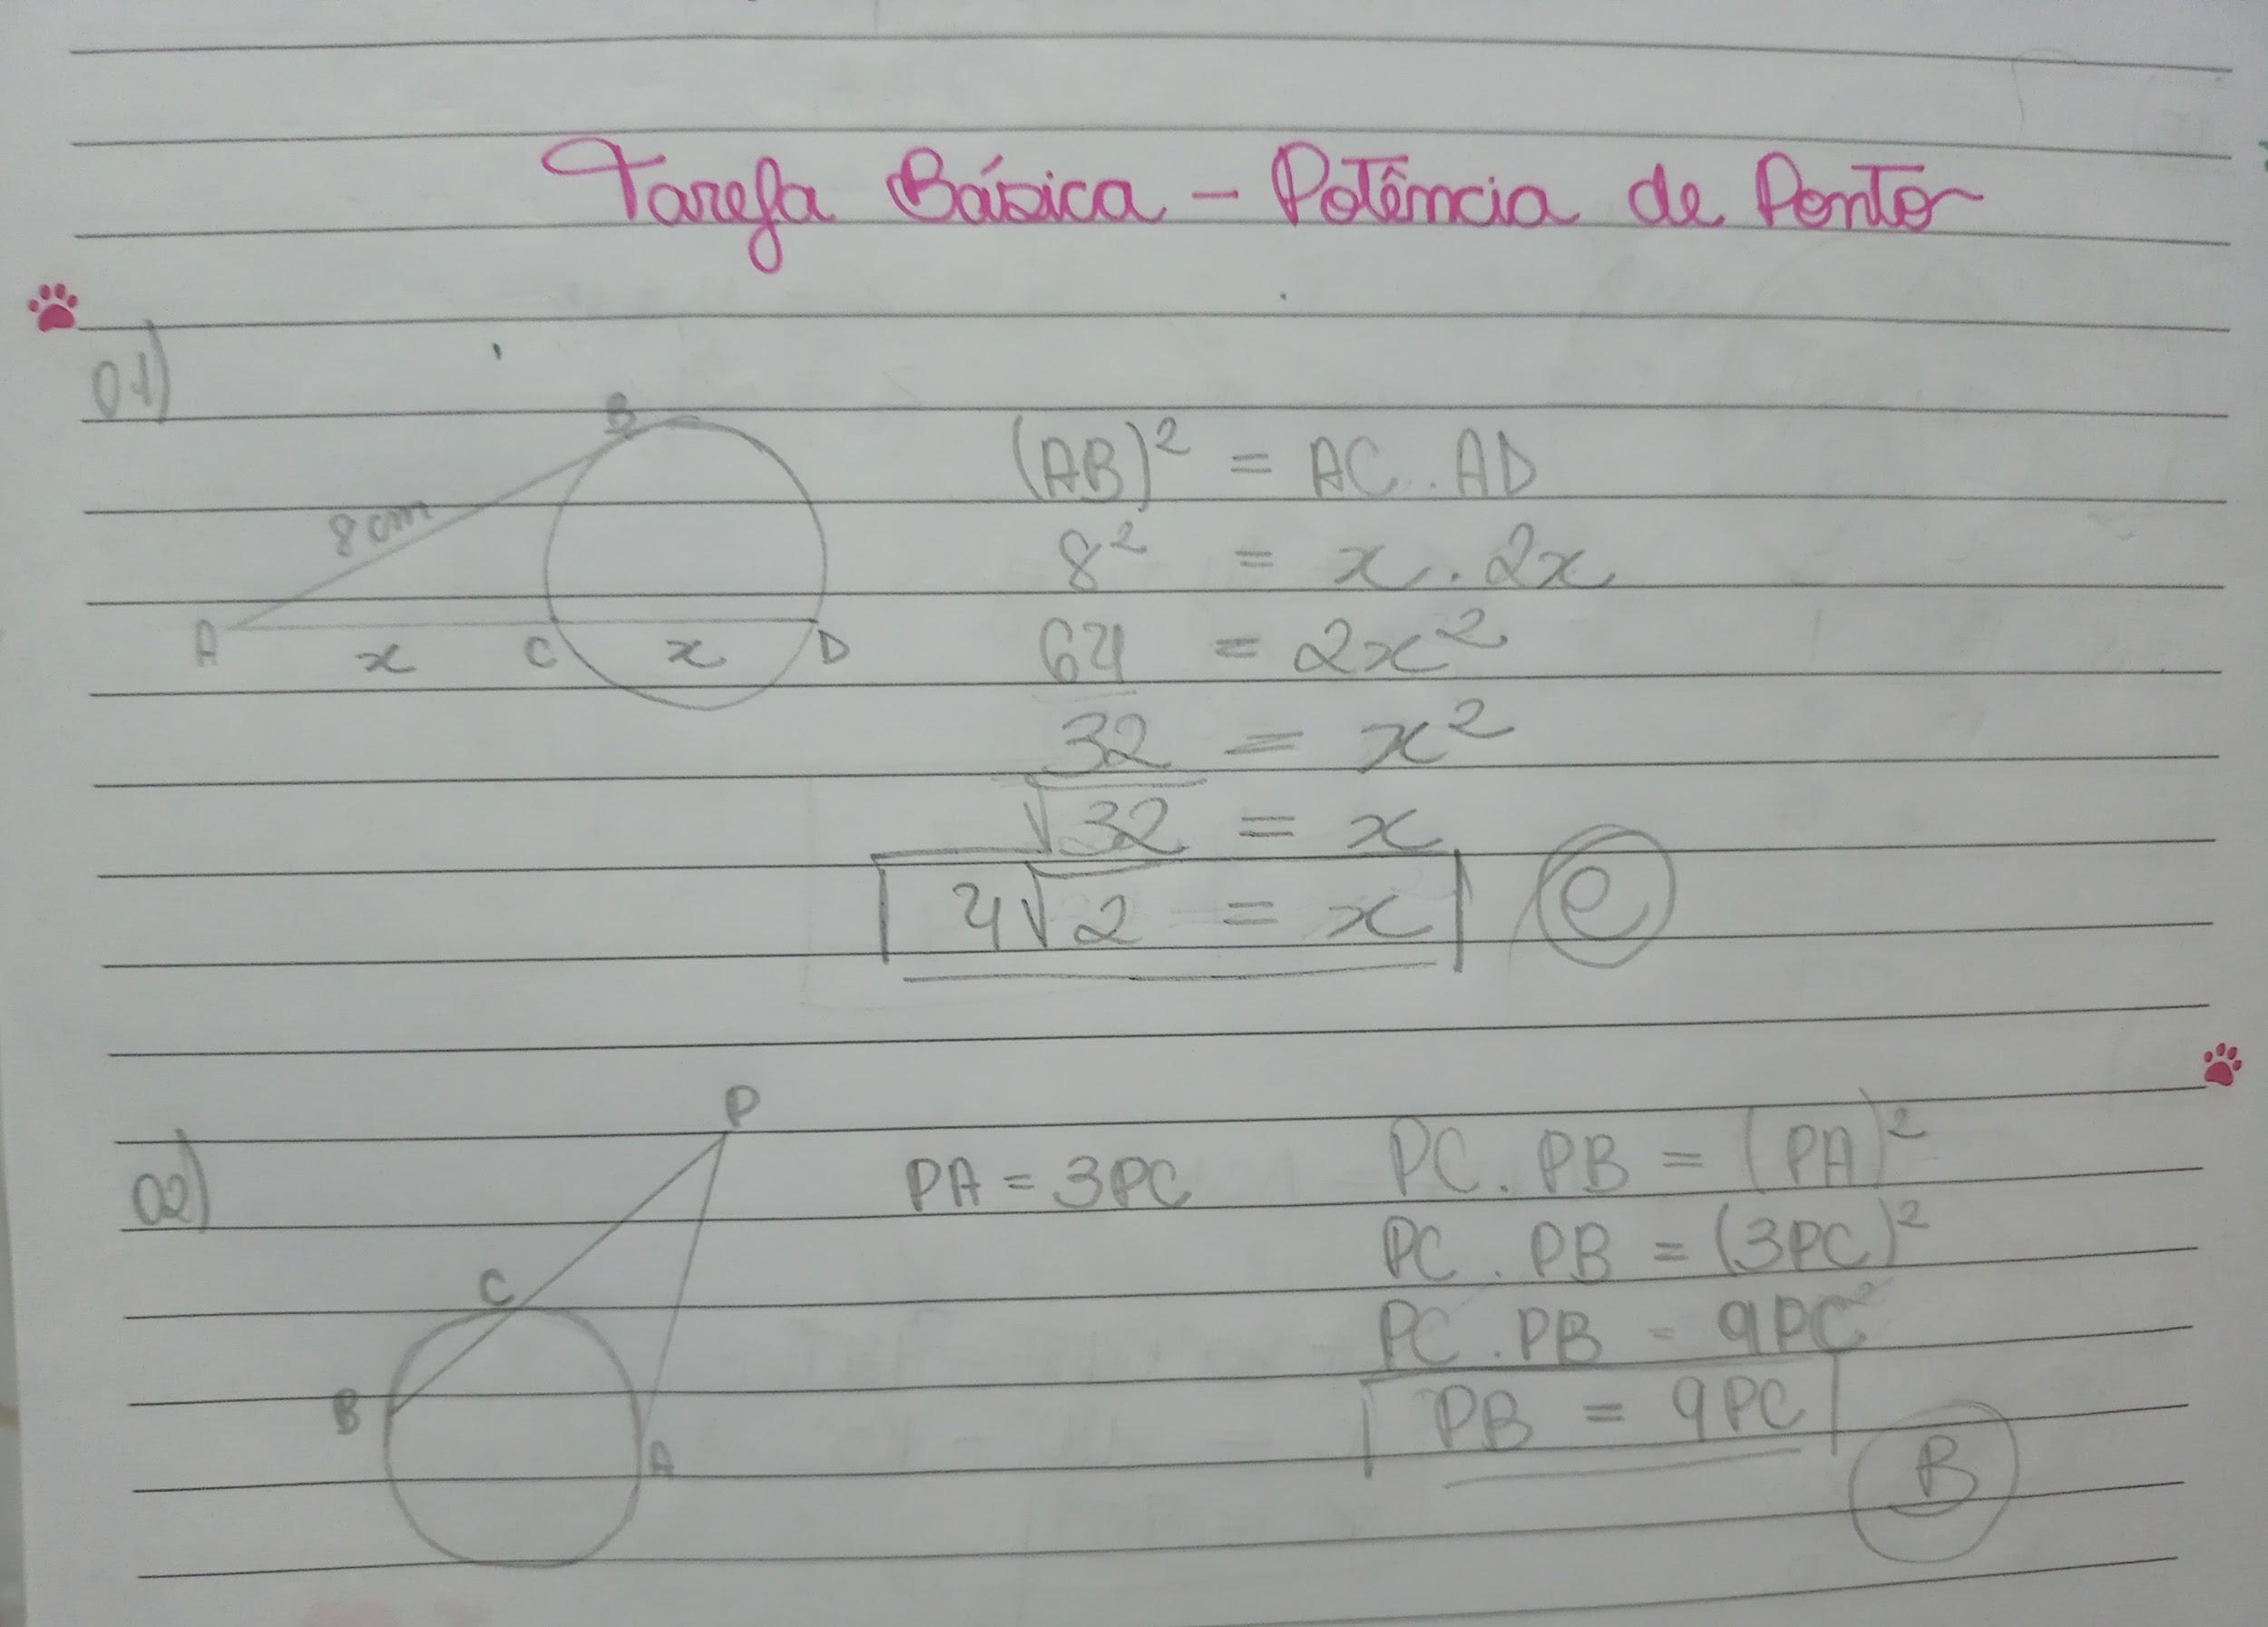 Tarefa Básica - Potência de Ponto
01)
B
8cm
A x C x D
(AB)² = AC . AD
8² = x . 2x
64 = 2x²
32 = x²
√32 = x
4√2 = x e
02)
P
C
B
A
PA = 3PC
PC . PB = (PA)²
PC . PB = (3PC)²
PC . PB = 9PC²
PB = 9PC
B